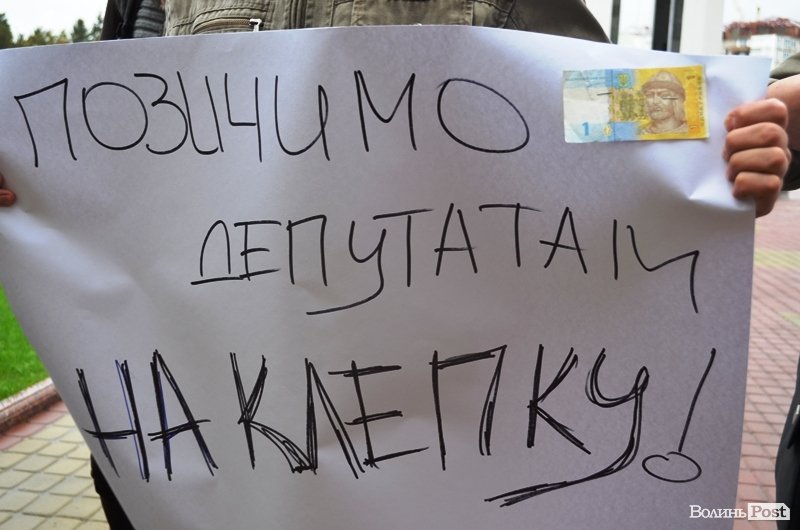 ПОЗИЧИМО
1
ДЕПУТАТАМ
НА КЛЕПКУ!
Волинь Post